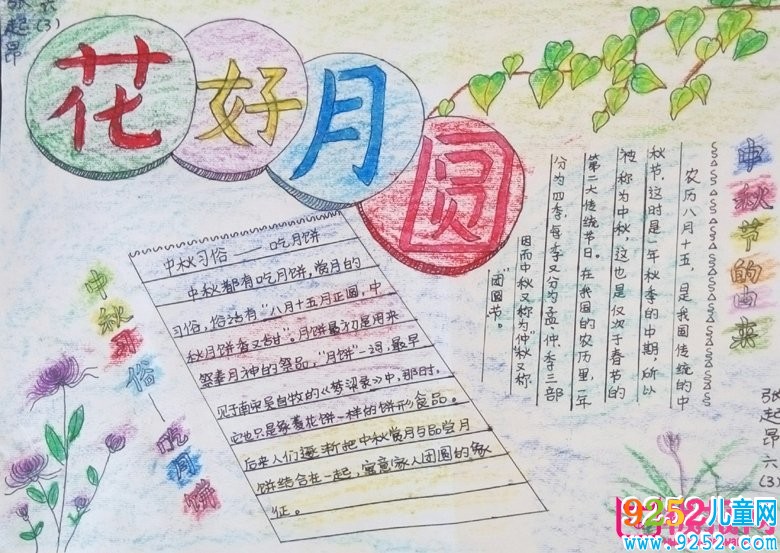 六(3)
张起昂
花好月圆
中秋节的由来
农历八月十五,是我国传统的中
秋节,这时是一年秋季的中期,所以
被称为中秋,这也是仅次于春节的
第二大传统节日。在我国的农历里,一年
分为四季,每季又分为孟、仲、季三部
因而中秋又称为“仲”秋又称
“团圆节。”
中秋习俗——吃月饼
中秋习俗 吃月饼
中秋都有吃月饼,赏月的
习俗,俗话有“八月十五月正圆,中
秋月饼香又甜”。月饼最初是用来
祭奉月神的祭品,“月饼”一词,最早
见于南宋吴自牧的《梦梁录》中,那时,
它也只是象菱花饼一样的饼形食品。
后来人们逐渐把中秋赏月与品尝月
饼结合在一起,寓意家人团圆的象
征。
张起昂六(3)
9252儿童网
www.9252.com